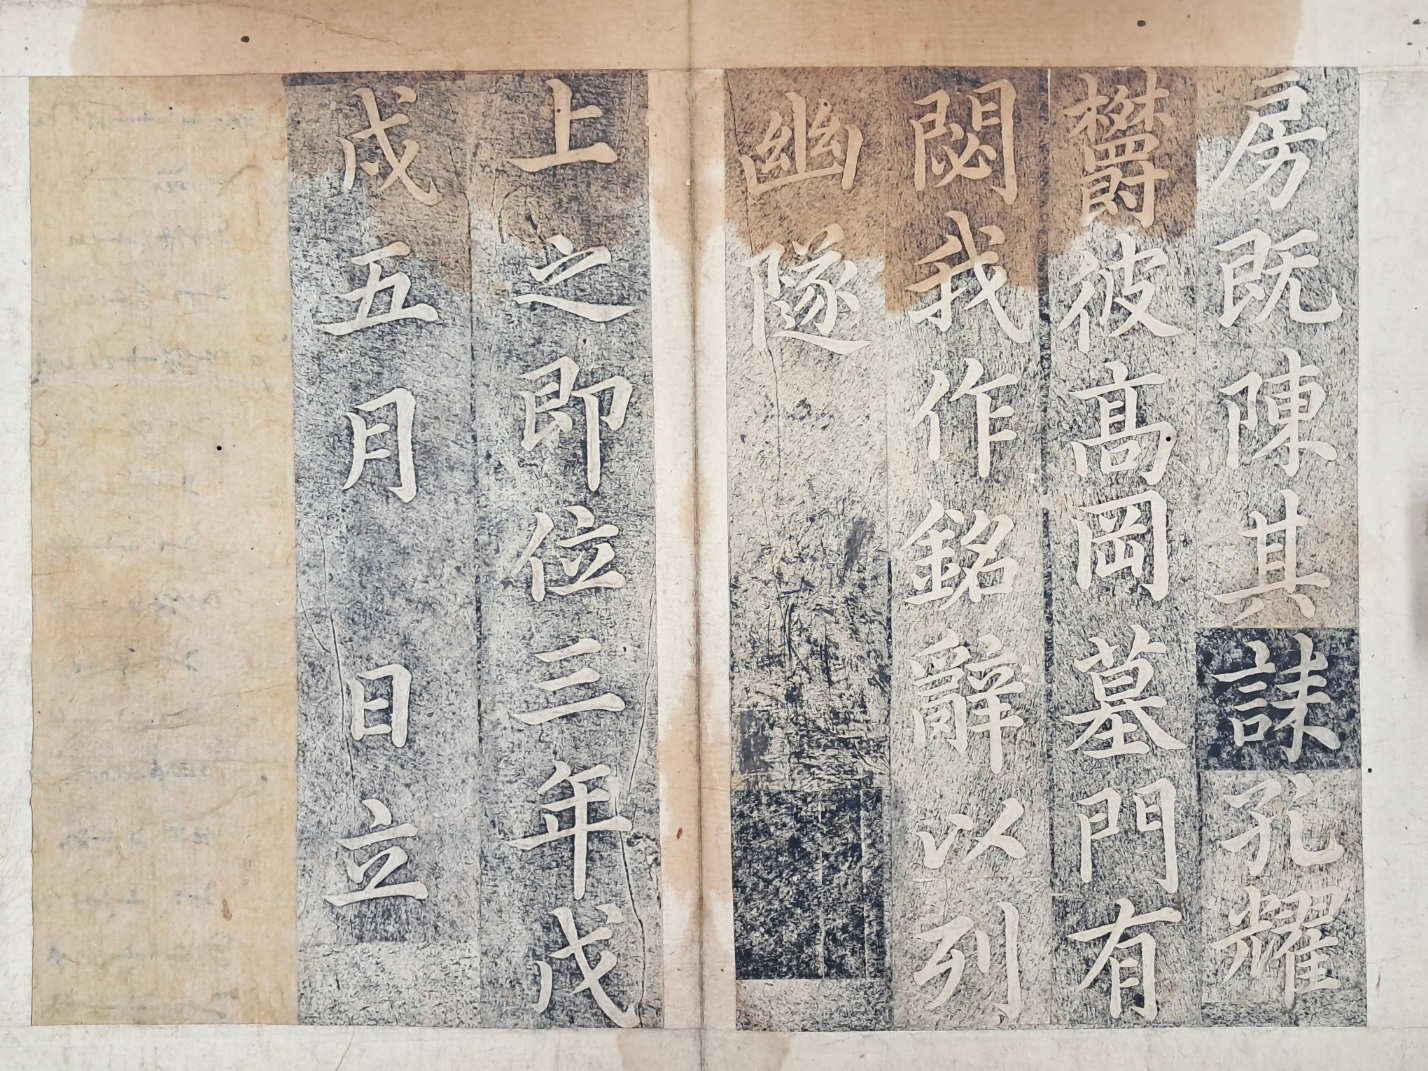 房既陳其誄孔耀
欎彼高岡墓門有
閟我作銘辭以列
幽隧
上之即位三年戊
戌五月日立